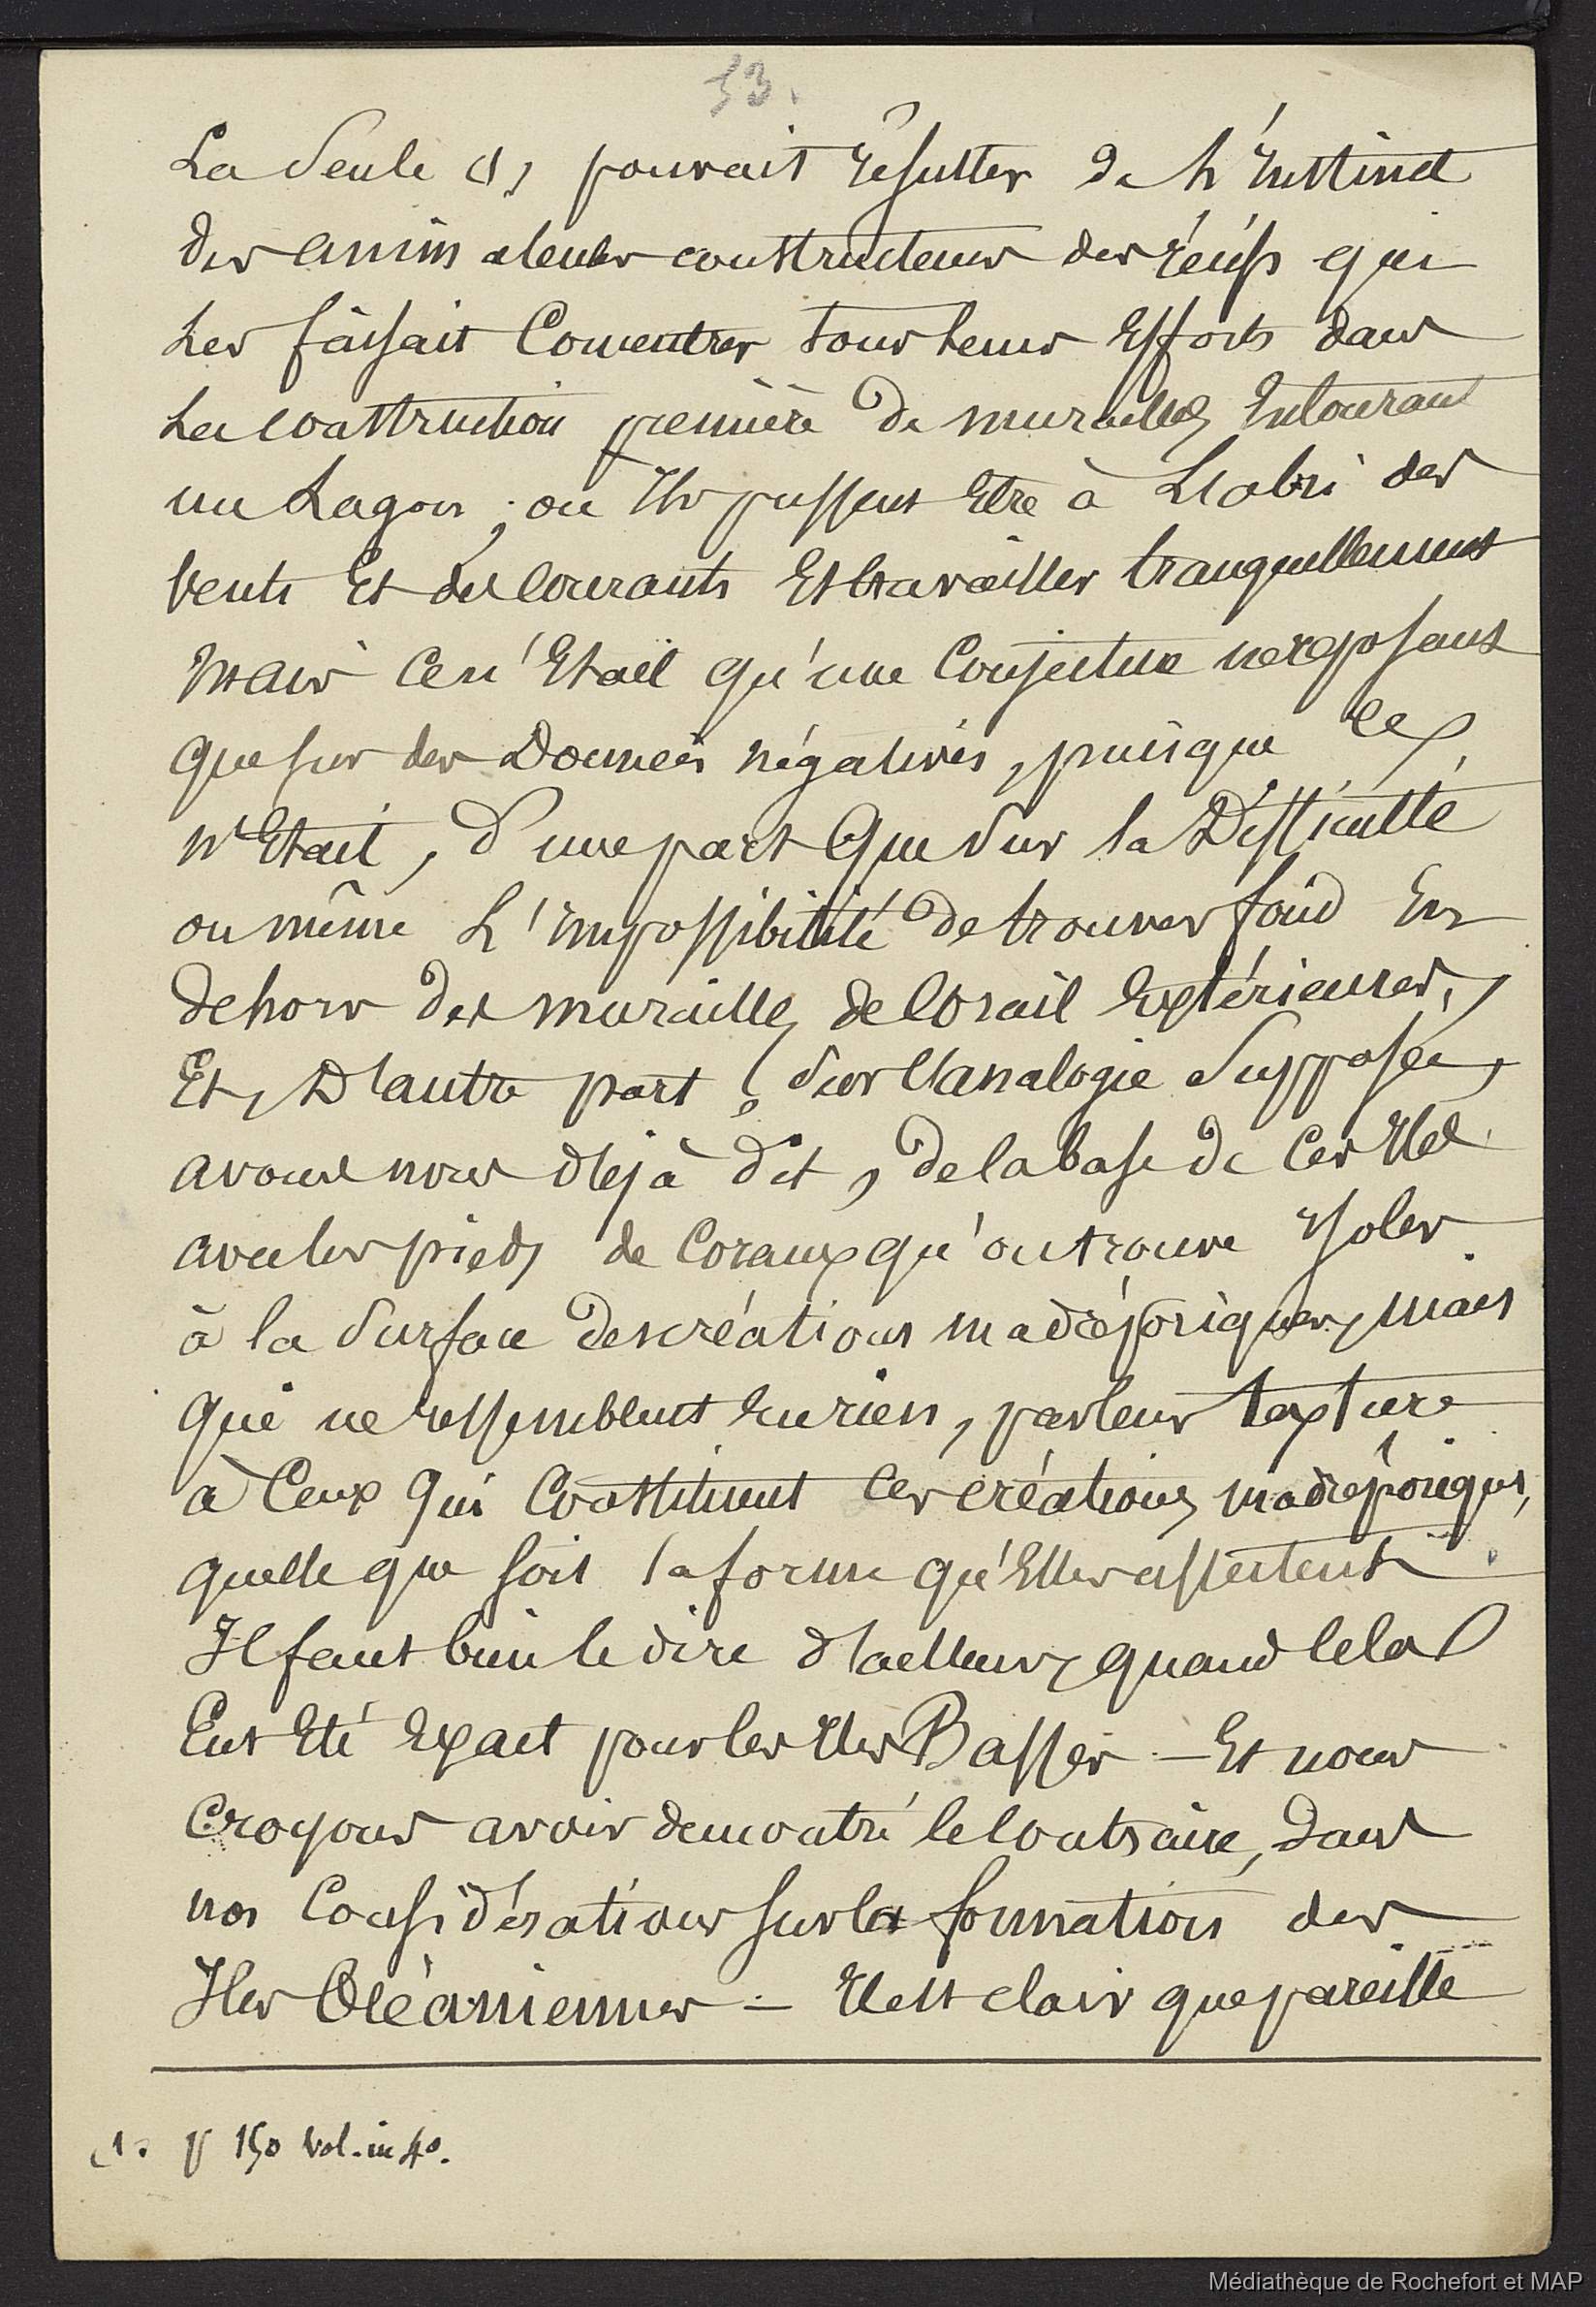 53.
La Seule (1) pouvait résulter de L'Instinct
des animalcules constructeurs des récifs qui
Les faisait Concentrer tous leurs Efforts dans
La construction première de murailles Entourant
un Lagon, où Ils pussent Etre à L'abri des
Vents Et des Courants Et travailler tranquillement
Mais Ce n'Etait qu'une Conjecture ne reposant
que sur des Données négatives, puisque Ce
n'Etait, d'une part que sur la Difficulté
ou même L'Impossibilité de trouver fond En
dehors des murailles de Corail Extérieures,
Et, D'autre part, sur L'analogie Supposée,
avons nous déjà dit, de la base de Ces Iles
avec les pieds de Coraux qu'on trouve Isoles
à la Surface des créations madréporiques, mais
qui ne ressemblent En rien, par leur texture
à Ceux qui Constituent Ces créations madréporiques,
quelle que soit la forme qu'Elles affectent
Il faut bien le dire d'ailleurs, quand Cela
Eut Eté Exact pour les Iles Basses — Et nous
Croyons avoir démontré le Contraire, dans
nos Considérations sur la formation des
Iles Océaniennes — Il est clair que pareille
(1. p 150 Vol. in 4o.
Médiathèque de Rochefort et MAP